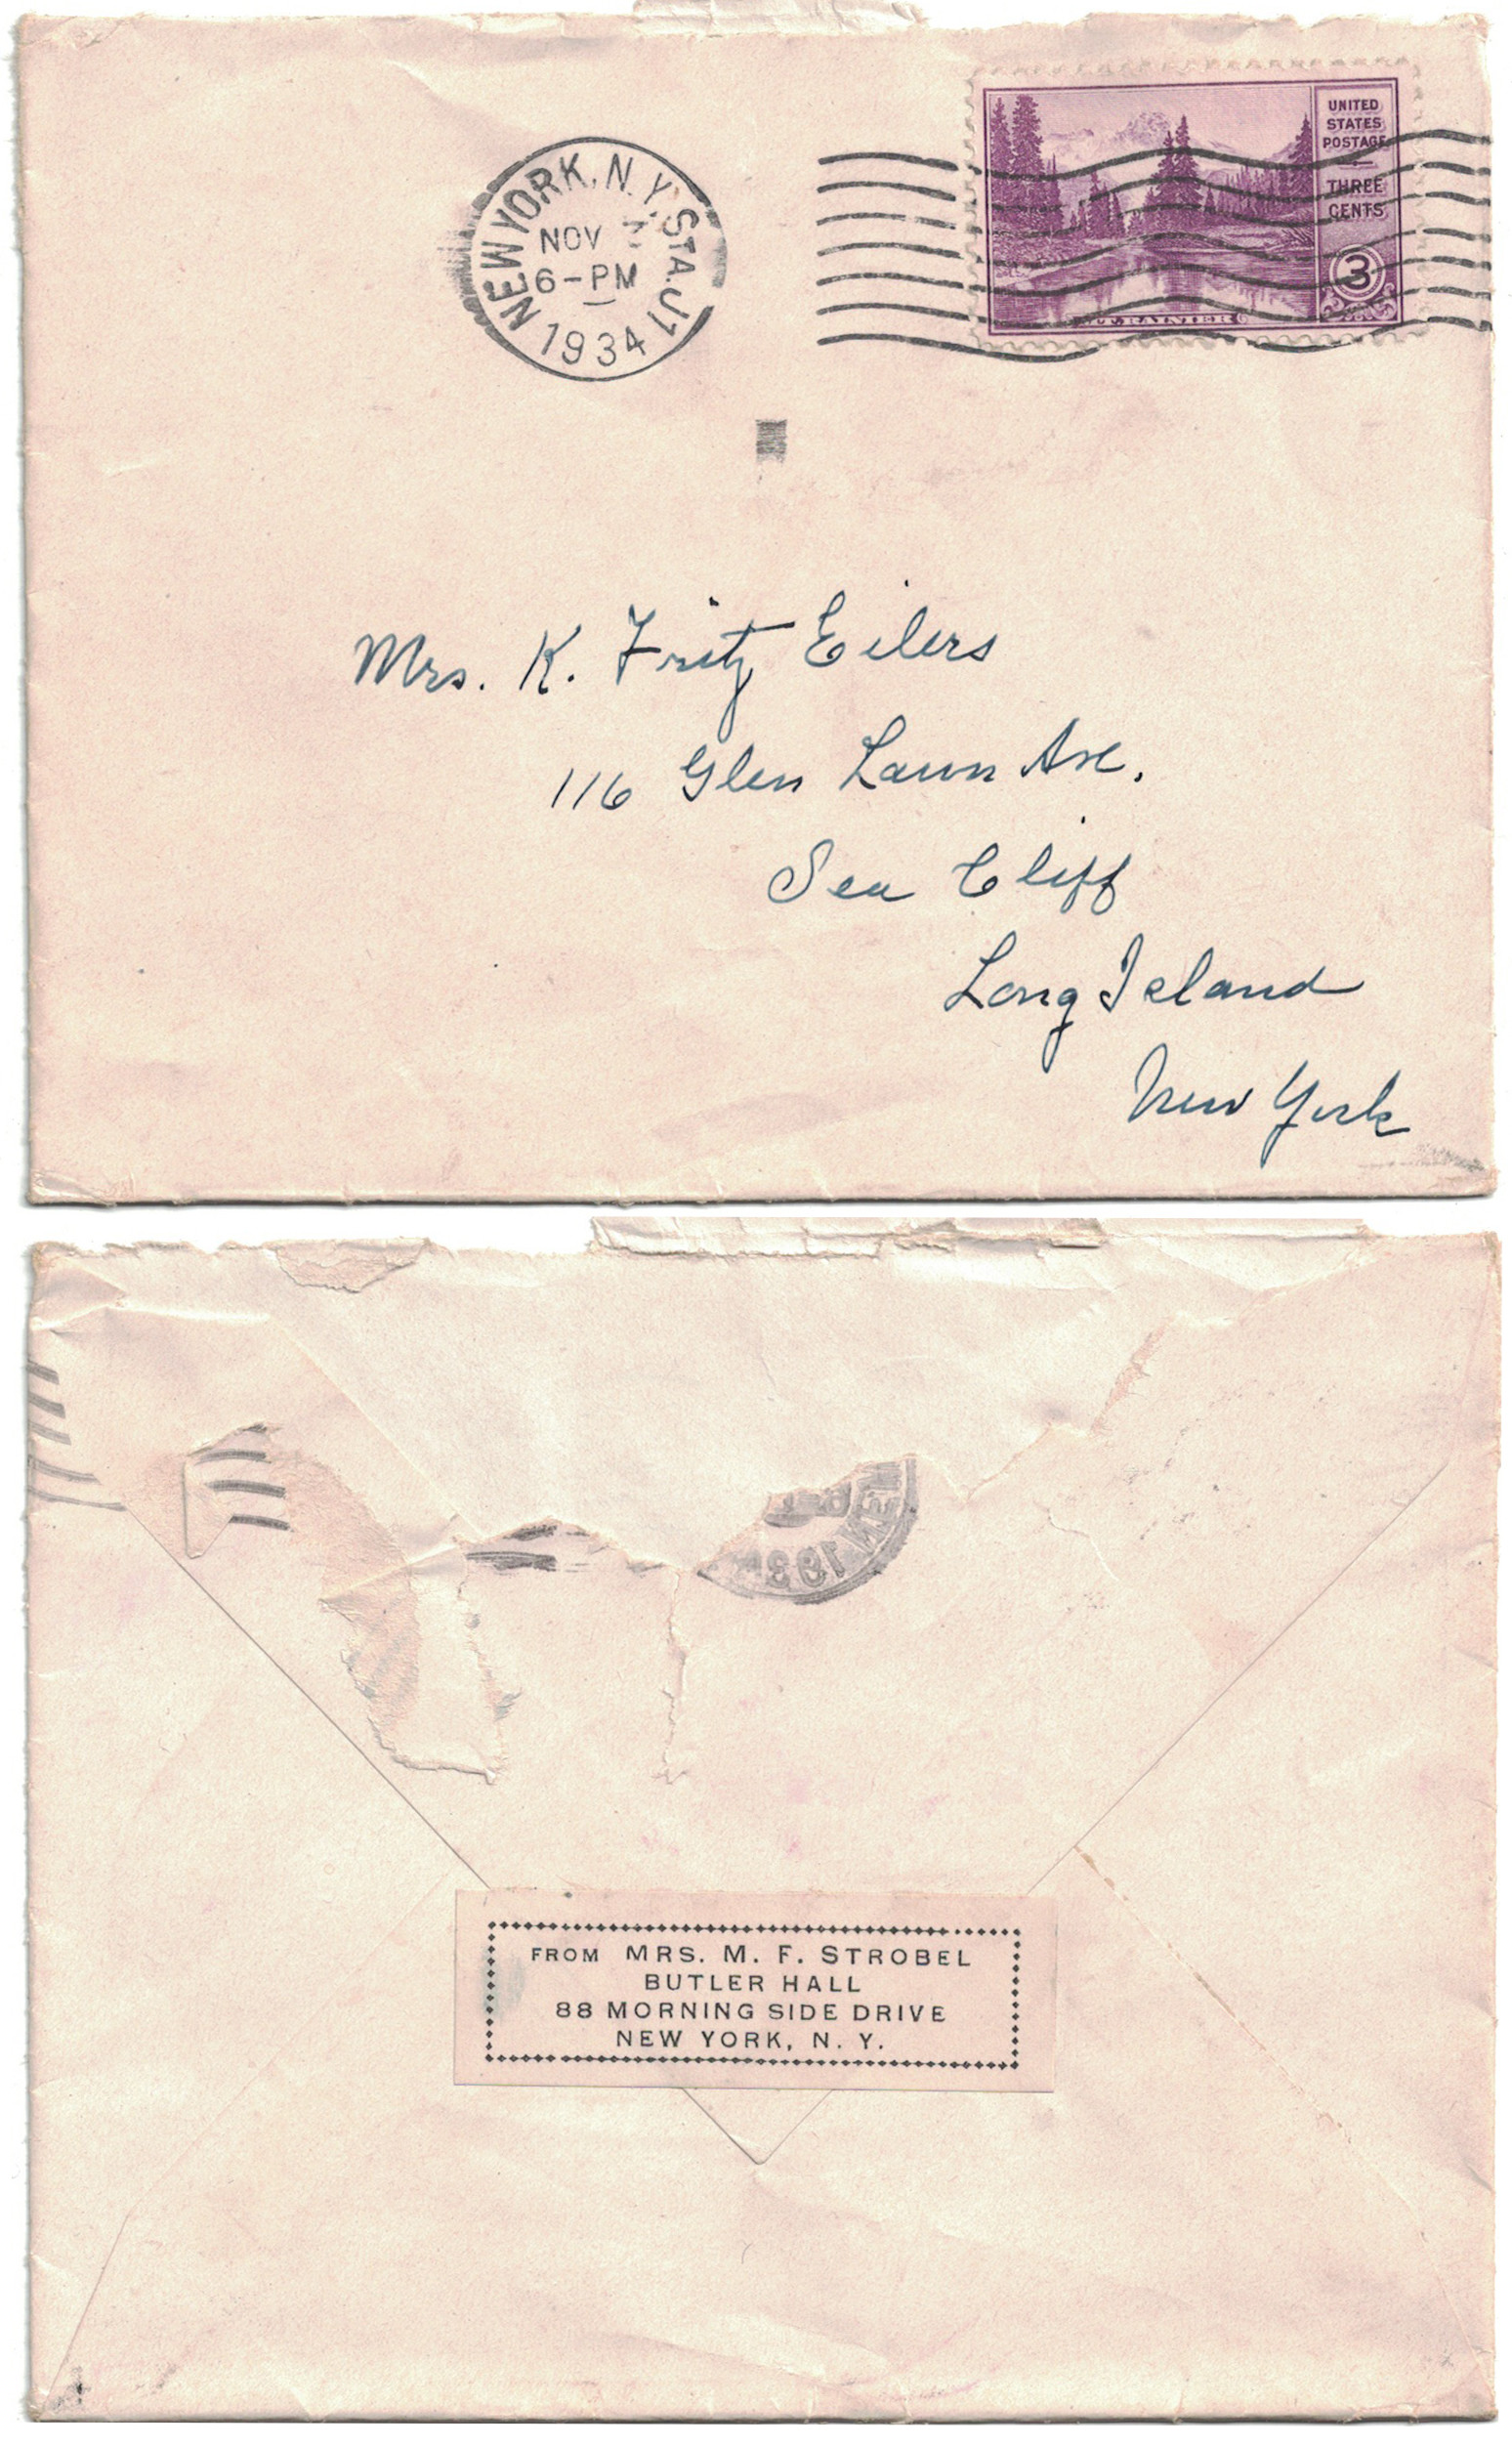 NEW YORK, N.Y. STA. J1
NOV
6-PM
1934
UNITED
STATES
POSTAGE
THREE
CENTS
3
MT. RAINIER
Mrs. K. Fritz Eilers
116 Glen Lawn Ave.
Sea Cliff
Long Island
New York
FROM MRS. M. F. STROBEL
BUTLER HALL
88 MORNING SIDE DRIVE
NEW YORK, N. Y.